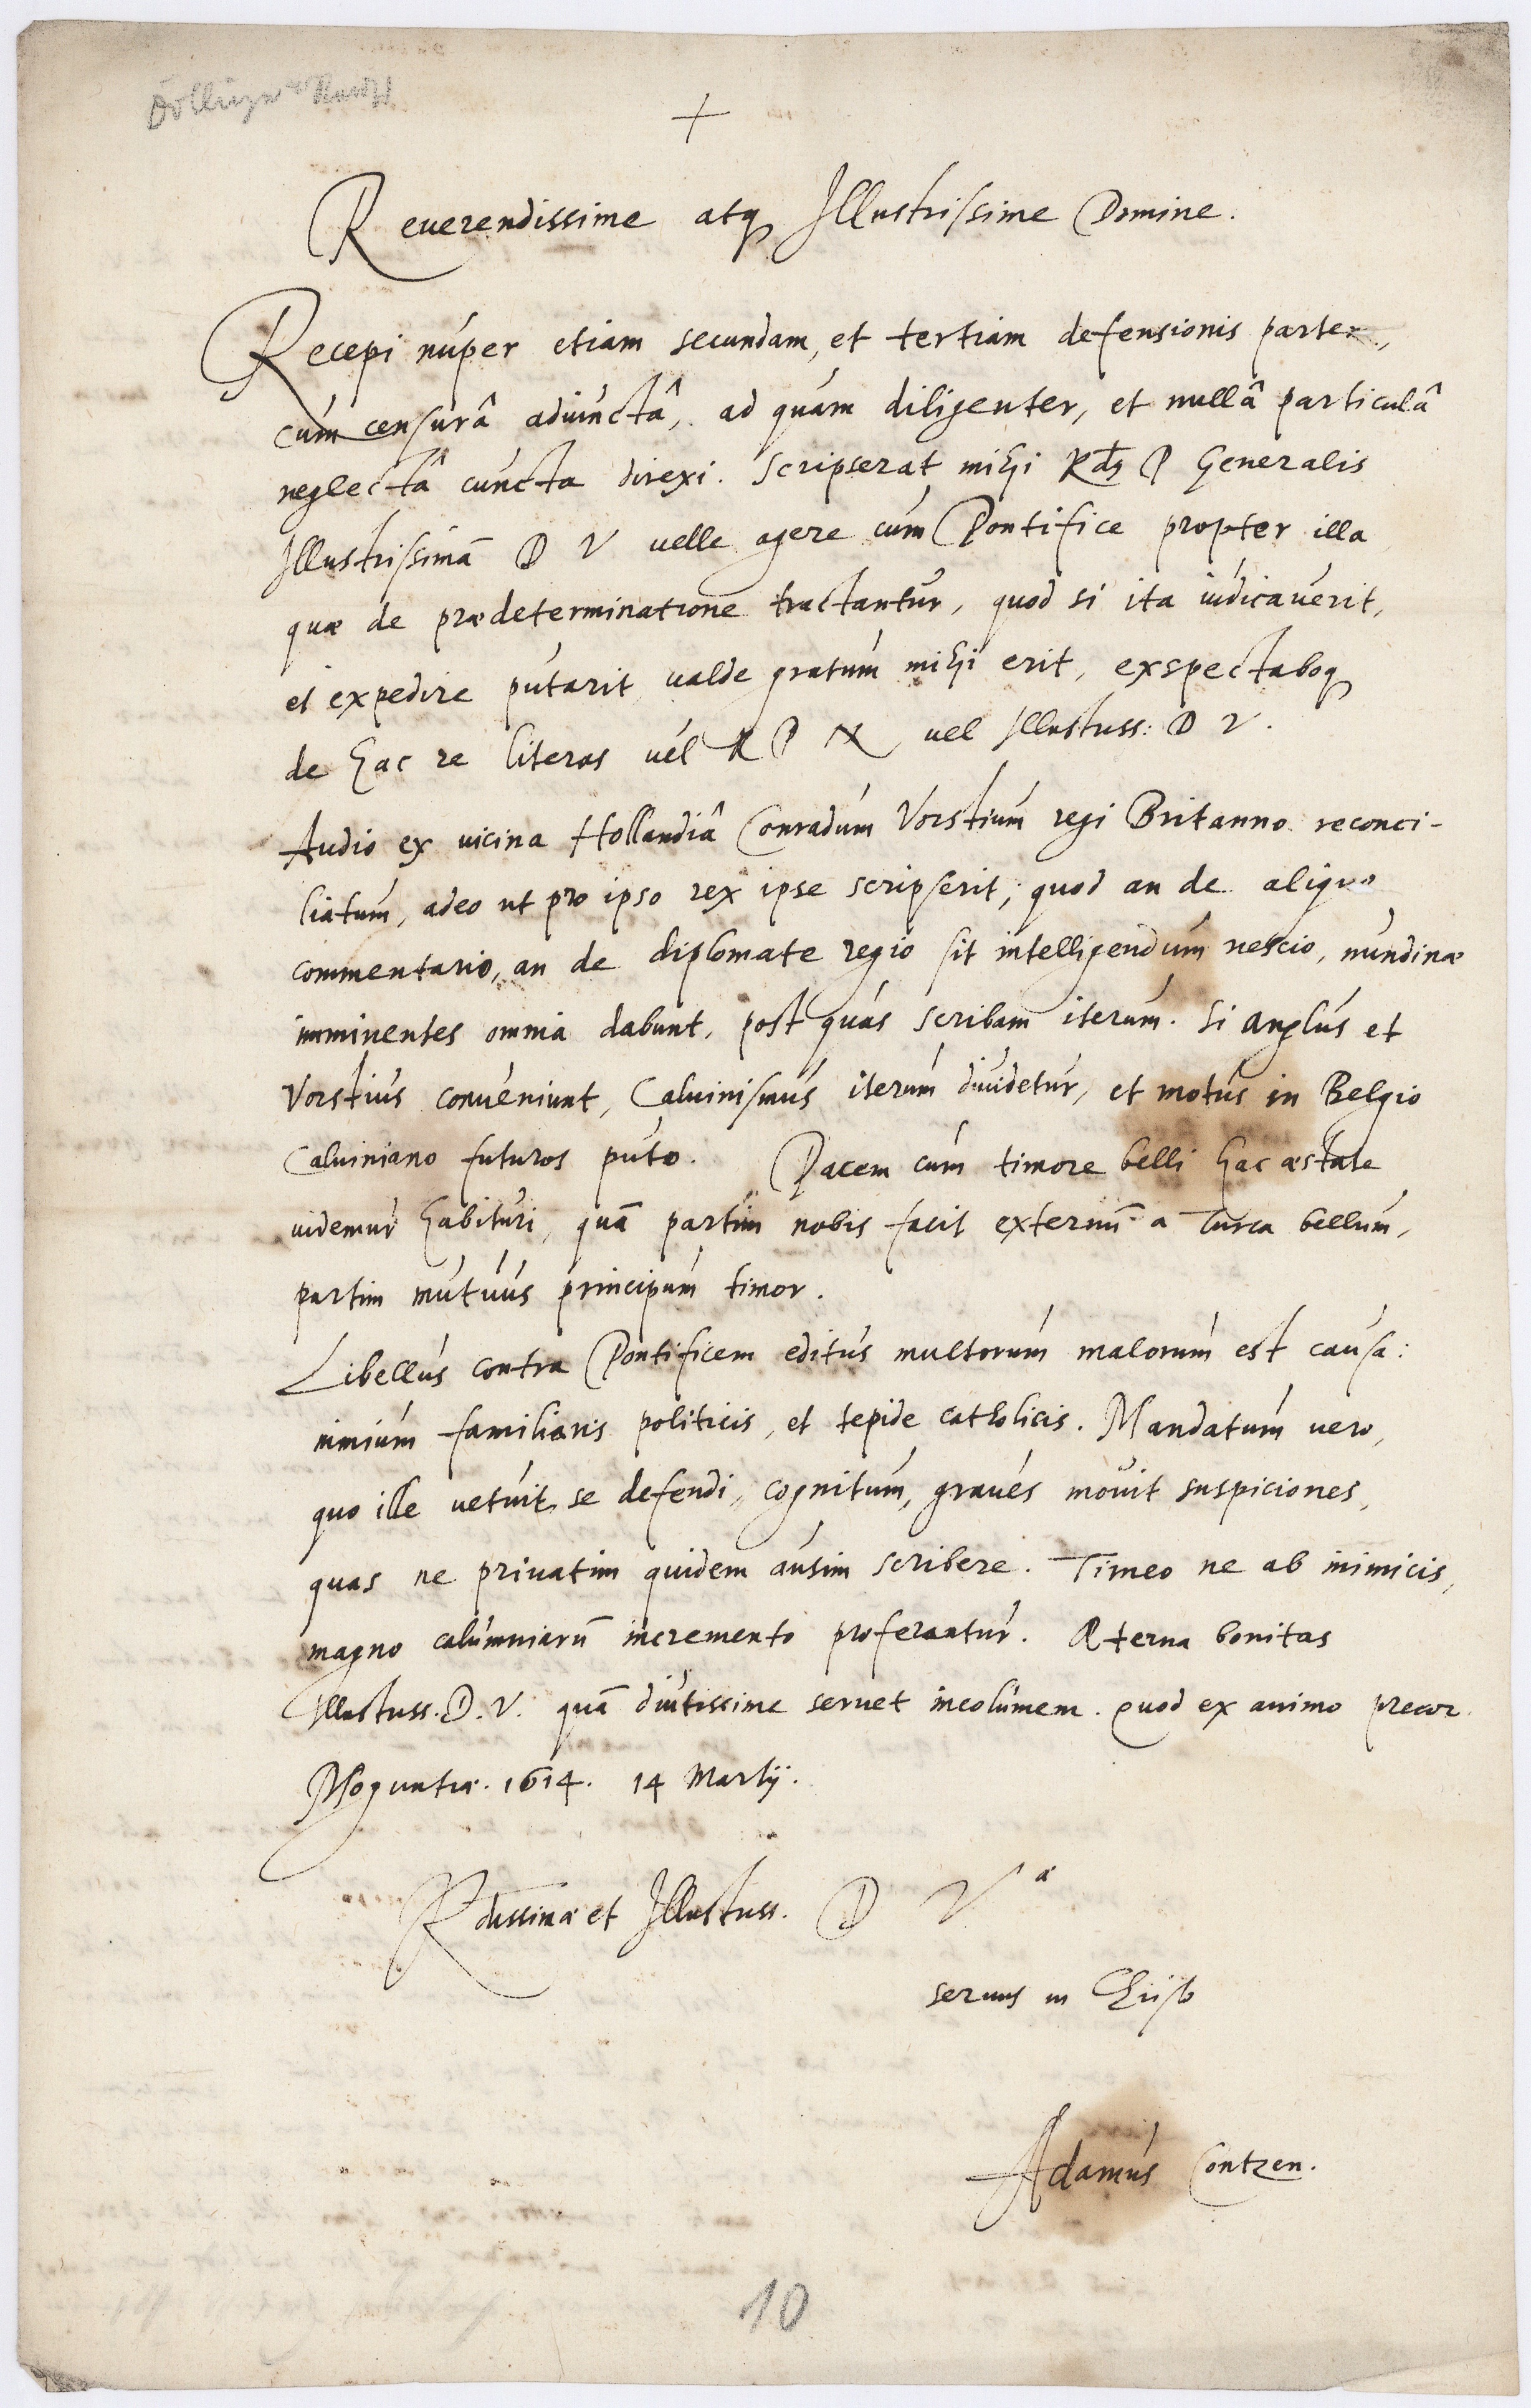 +
Reuerendissime atq Illustrissime Domine.
Recepi núper etiam secundam, et tertiam defensionis partem,
cúm censurâ adiúnctâ, ad quám diligenter, et nullâ particulâ
neglectâ cúncta direxi. Scripserat mihi Rds P Generalis
Illustrissimā D V uelle agere cúm Pontifice propter illa
quæ de prædeterminatione tractantúr, quod si ita iúdicauerit,
et expedire pútarit ualde gratúm mihi erit, exspectaboq
de hac re literas uél R P N uel Illustriss: D V.
Audio ex uicina Hollandiâ Conradúm Vorstiúm regi Britanno reconci-
liatum, adeo ut pro ipso rex ipse scripserit; quod an de aliquo
commentario, an de diplomate regio sit intelligendúm nescio, núndinæ
imminentes omnia dabunt, post quás scribam iterúm. Si Anglús et
Vorstiús conueniunt, Caluinismús iterúm diuidetúr, et motús in Belgio
Caluiniano futuros púto. Pacem cúm timore belli hac æstate
uidemúr habitúri, quā partim nobis facit externū a Turca bellum,
partim mútúus principúm timor.
Libellús contra Pontificem editús multorúm malorúm est caúsa:
nimiúm familiaris politicis, et tepide catholicis. Mandatúm uero,
quo ille uetúit se defendi, cognitúm, graúes mouit suspiciones,
quas ne priuatim quidem aúsim scribere. Timeo ne ab inimicis,
magno calúmniarū incremento proferantúr. Æterna bonitas
Illustriss. D. V. quā diútissime seruet incolúmem. Quod ex animo precor.
Moguntiæ. 1614. 14 Martij.
Rdissimæ et Illustriss. D V æ
seruus in Christo
Adamús Contzen.
10